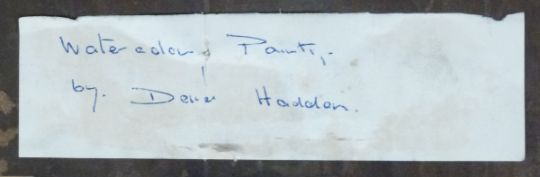 Watercolour Paints,-
by. Derek Haddon.